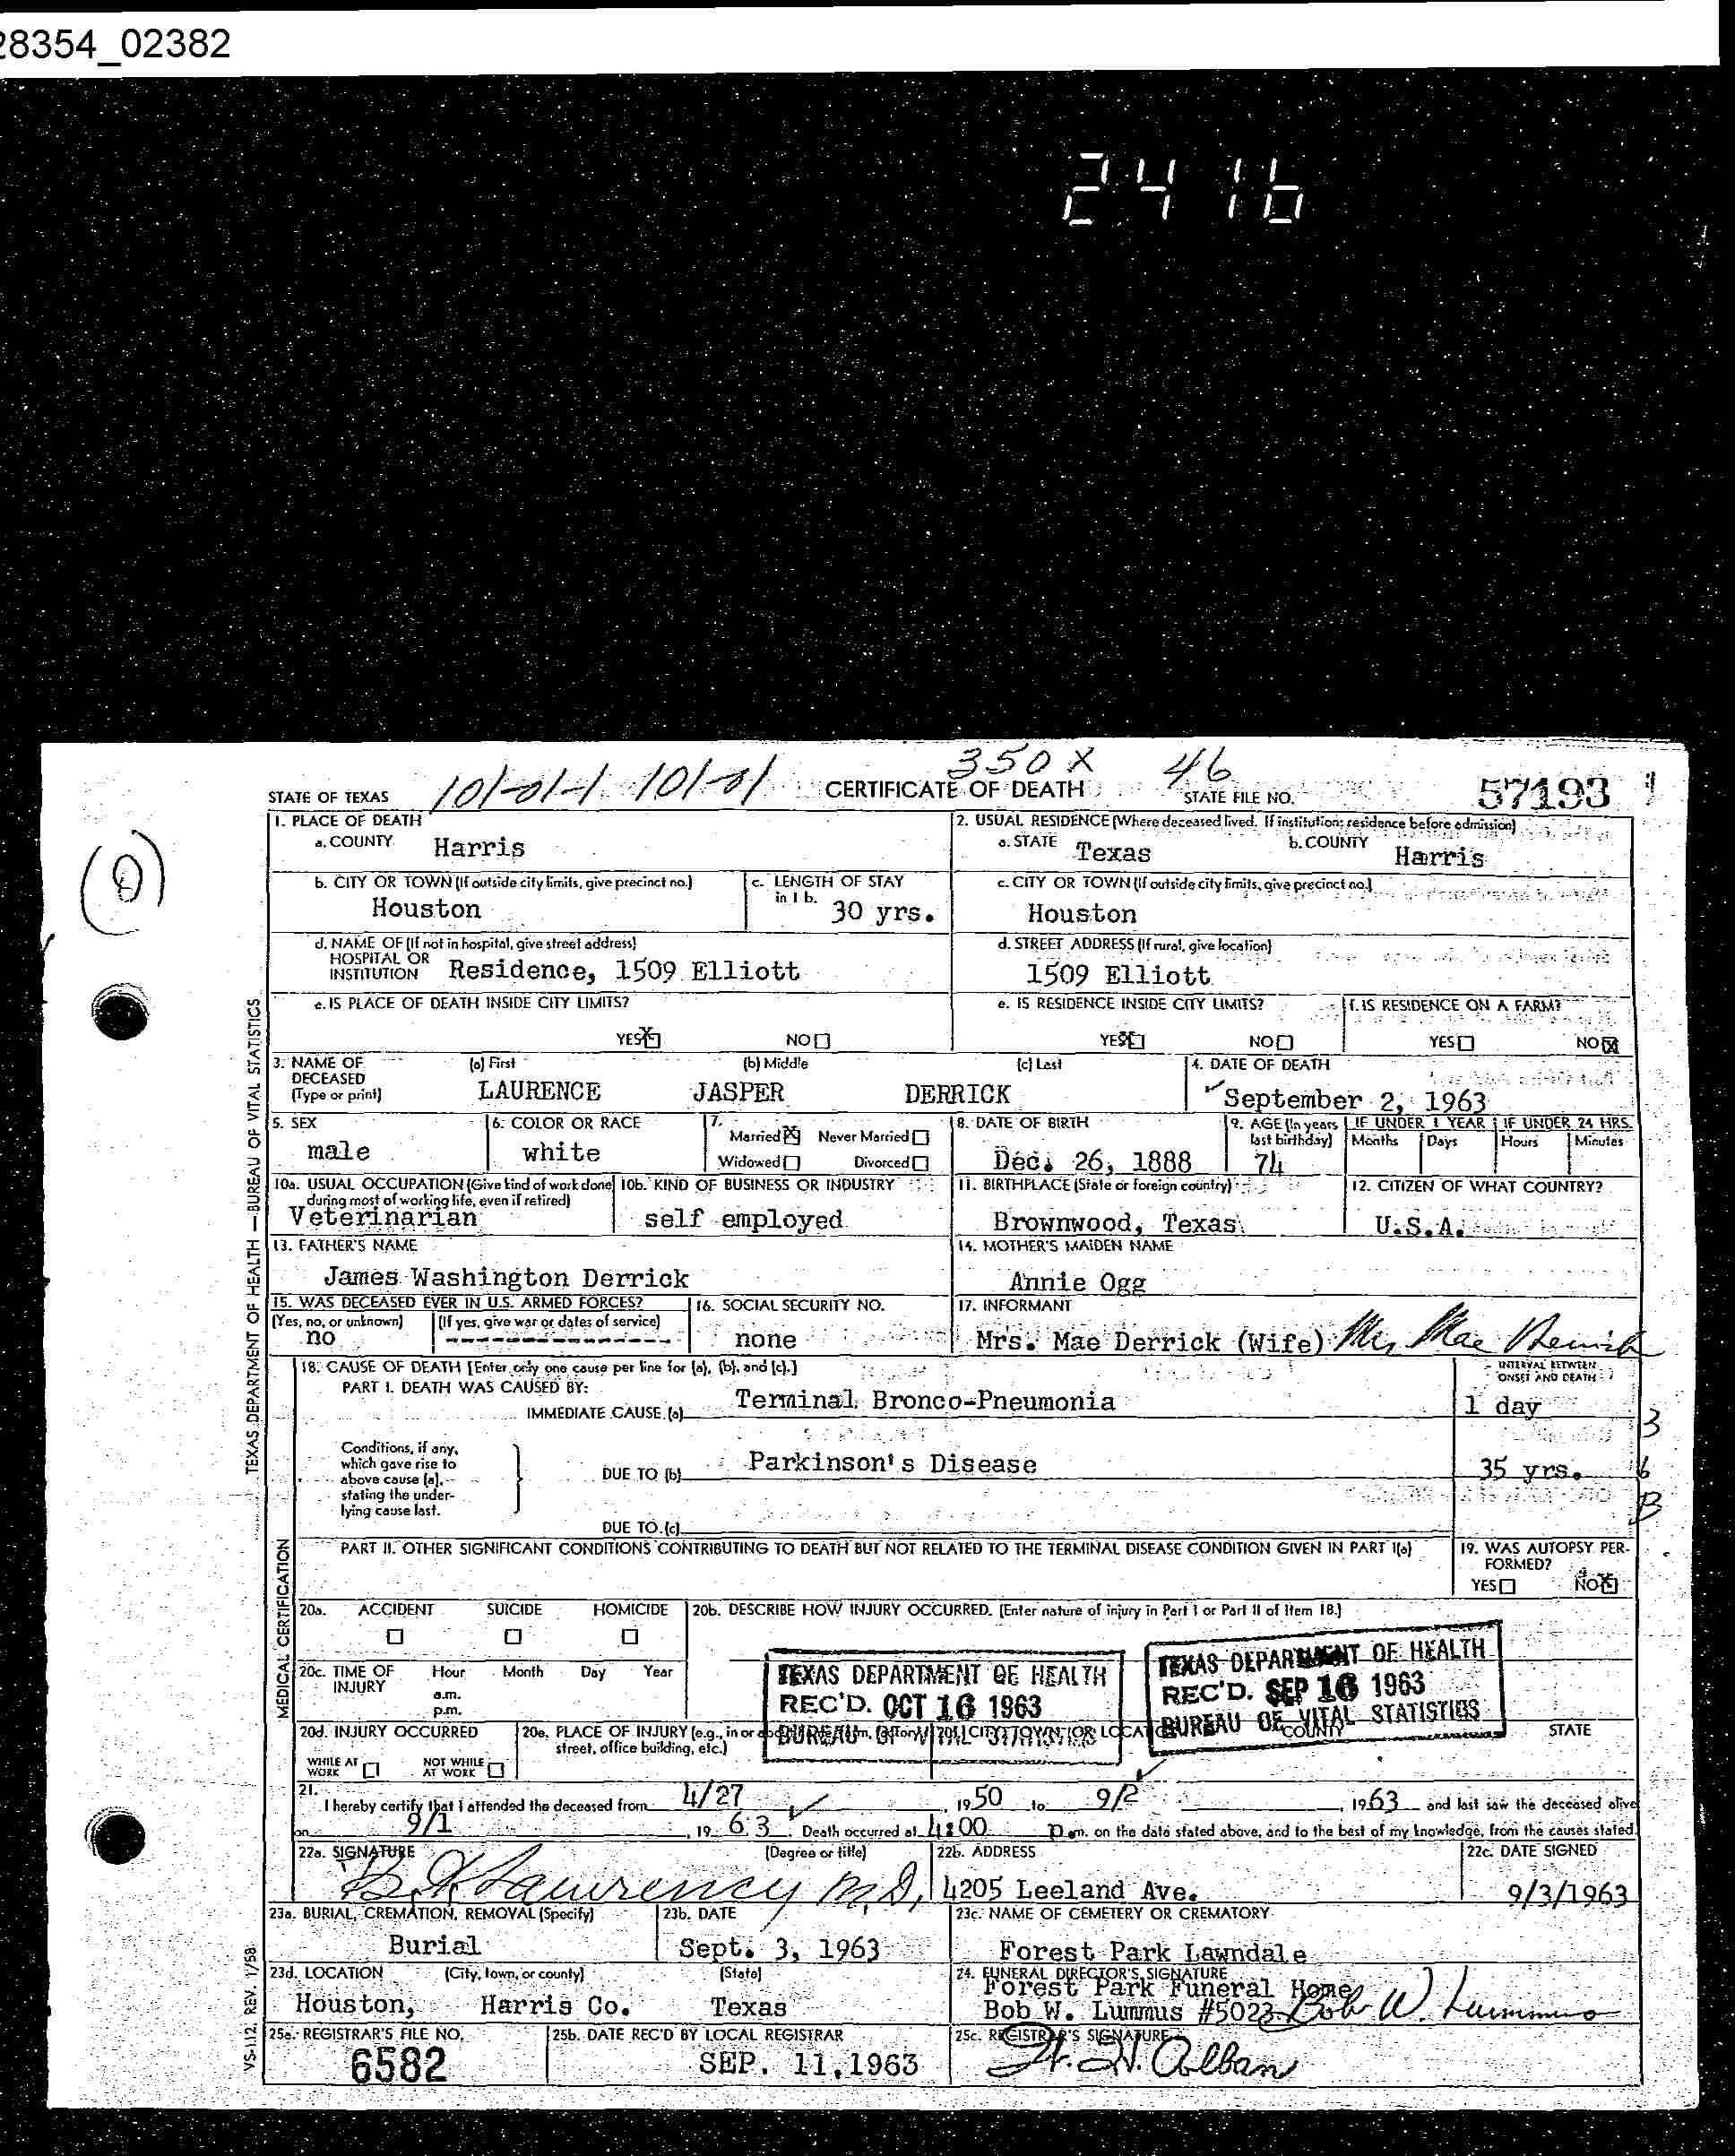 28354_02382
2416
350X 46
STATE OF TEXAS 101-01-1 101-01 CERTIFICATE OF DEATH STATE FILE NO. 57193
1. PLACE OF DEATH
a. COUNTY Harris
2. USUAL RESIDENCE (Where deceased lived. If institution: residence before admission)
a. STATE Texas b. COUNTY Harris
b. CITY OR TOWN (If outside city limits, give precinct no.) Houston
c. LENGTH OF STAY in 1 b. 30 yrs.
c. CITY OR TOWN (If outside city limits, give precinct no.) Houston
d. NAME OF (If not in hospital, give street address)
HOSPITAL OR
INSTITUTION Residence, 1509 Elliott
d. STREET ADDRESS (If rural, give location)
1509 Elliott
e. IS PLACE OF DEATH INSIDE CITY LIMITS?
YES X NO
e. IS RESIDENCE INSIDE CITY LIMITS?
YES X NO
f. IS RESIDENCE ON A FARM?
YES NO X
3. NAME OF DECEASED (Type or print)
(a) First (b) Middle (c) Last
LAURENCE JASPER DERRICK
4. DATE OF DEATH
September 2, 1963
5. SEX male
6. COLOR OR RACE white
7. Married X Never Married
Widowed Divorced
8. DATE OF BIRTH Dec. 26, 1888
9. AGE (In years last birthday) 74
IF UNDER 1 YEAR Months Days
IF UNDER 24 HRS. Hours Minutes
10a. USUAL OCCUPATION (Give kind of work done during most of working life, even if retired)
Veterinarian
10b. KIND OF BUSINESS OR INDUSTRY
self employed
11. BIRTHPLACE (State or foreign country)
Brownwood, Texas
12. CITIZEN OF WHAT COUNTRY?
U.S.A.
13. FATHER'S NAME
James Washington Derrick
14. MOTHER'S MAIDEN NAME
Annie Ogg
15. WAS DECEASED EVER IN U.S. ARMED FORCES?
(Yes, no, or unknown) (If yes, give war or dates of service)
no ----------------
16. SOCIAL SECURITY NO.
none
17. INFORMANT
Mrs. Mae Derrick (Wife) Mrs Mae Derrick
18. CAUSE OF DEATH [Enter only one cause per line for (a), (b), and (c).]
INTERVAL BETWEEN ONSET AND DEATH
PART I. DEATH WAS CAUSED BY:
IMMEDIATE CAUSE (a) Terminal Bronco-Pneumonia 1 day
3
Conditions, if any, which gave rise to above cause (a), stating the underlying cause last.
DUE TO (b) Parkinson's Disease 35 yrs.
6
B
DUE TO (c)
PART II. OTHER SIGNIFICANT CONDITIONS CONTRIBUTING TO DEATH BUT NOT RELATED TO THE TERMINAL DISEASE CONDITION GIVEN IN PART I(a)
19. WAS AUTOPSY PERFORMED?
YES NO X
20a. ACCIDENT SUICIDE HOMICIDE
20b. DESCRIBE HOW INJURY OCCURRED. (Enter nature of injury in Part I or Part II of Item 18.)
20c. TIME OF INJURY Hour Month Day Year
a.m.
p.m.
TEXAS DEPARTMENT OF HEALTH
REC'D. OCT 16 1963
BUREAU OF VITAL STATISTICS
TEXAS DEPARTMENT OF HEALTH
REC'D. SEP 16 1963
BUREAU OF VITAL STATISTICS
20d. INJURY OCCURRED
WHILE AT WORK NOT WHILE AT WORK
20e. PLACE OF INJURY (e.g., in or
street, office building, etc.)
COUNTY STATE
21. I hereby certify that I attended the deceased from 4/27 1950 to 9/2 1963 and last saw the deceased alive
on 9/1 19 63. Death occurred at 4:00 p m. on the date stated above, and to the best of my knowledge, from the causes stated.
22a. SIGNATURE (Degree or title)
M.D.
22b. ADDRESS
4205 Leeland Ave.
22c. DATE SIGNED
9/3/1963
23a. BURIAL, CREMATION, REMOVAL (Specify)
Burial
23b. DATE
Sept. 3, 1963
23c. NAME OF CEMETERY OR CREMATORY
Forest Park Lawndale
23d. LOCATION (City, town, or county) (State)
Houston, Harris Co. Texas
24. FUNERAL DIRECTOR'S SIGNATURE
Forest Park Funeral Home
Bob W. Lummus #5023 Bob W. Lummus
25a. REGISTRAR'S FILE NO.
6582
25b. DATE REC'D BY LOCAL REGISTRAR
SEP. 11, 1963
25c. REGISTRAR'S SIGNATURE
Alban
TEXAS DEPARTMENT OF HEALTH — BUREAU OF VITAL STATISTICS
MEDICAL CERTIFICATION
VS-112 REV. 1/58